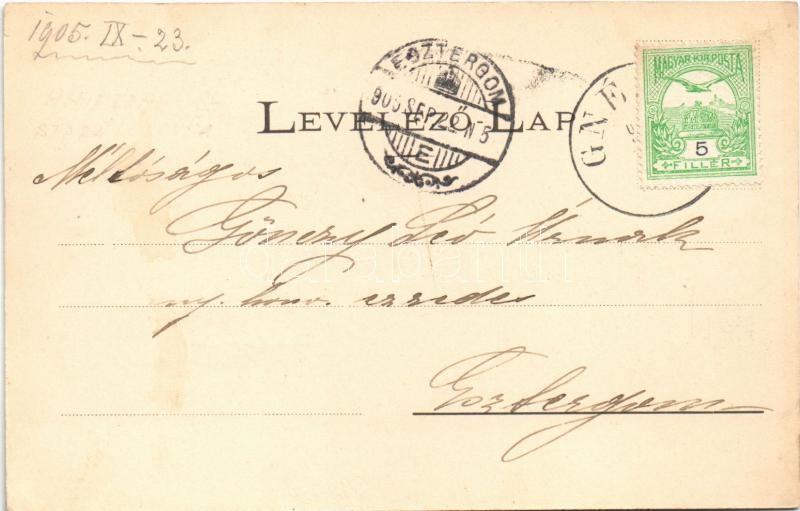 1905. IX - 23.
ESZTERGOM
905 SEP
N 5
E
GNÉ
MAGYAR·KIR·POSTA
5
FILLÉR
LEVELEZŐ LAP
Méltóságos
Gönczy Leó Úrnak
ny. honv. ezredes
Esztergom
darabanth